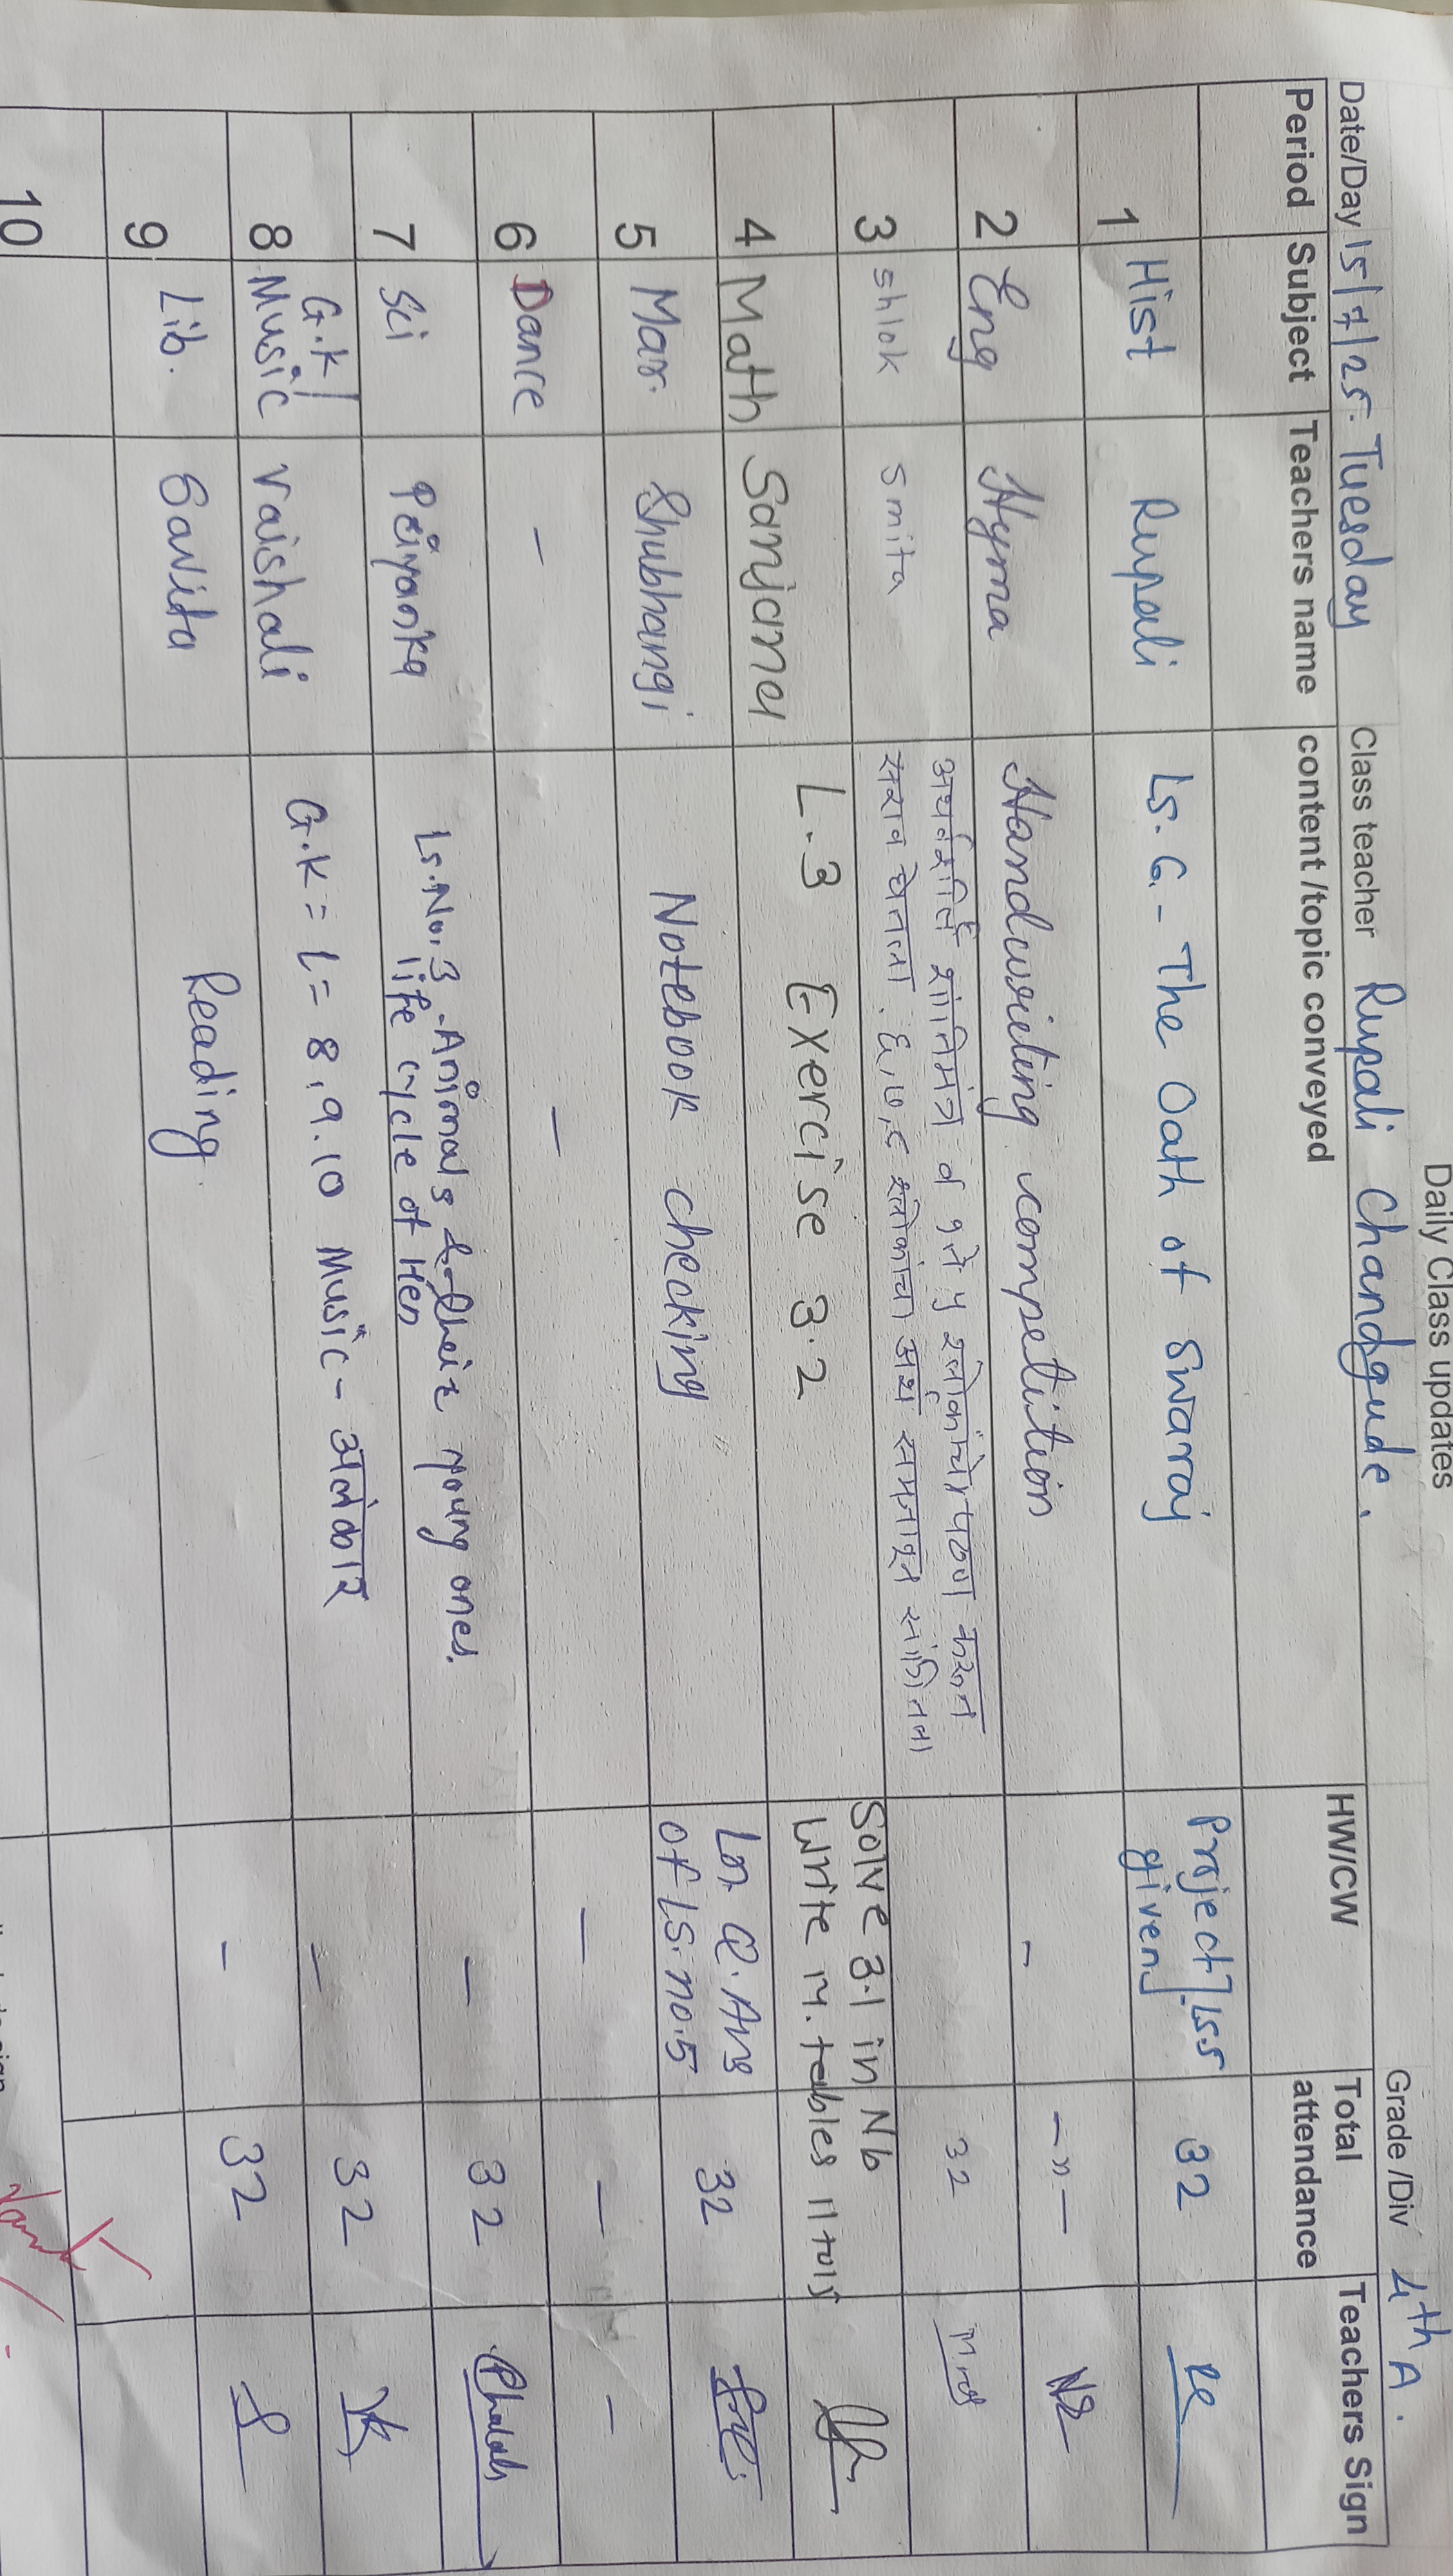 Daily Class updates
Date/Day 15/7/25. Tuesday Class teacher Rupali Chandgude. Grade /Div 4th A.
Period Subject Teachers name content /topic conveyed HW/CW Total attendance Teachers Sign
1 Hist Rupali Ls. 6 - The Oath of Swaraj Project given] Ls.5 32
2 Eng Hyma Handwriting competition - -"-
3 shlok smita अथर्वशीर्ष शांतिमंत्र व १ ते ५ श्लोकांचे पठण करून
सराव घेतला. ६,७,८ श्लोकांचा अर्थ समजावून सांगितला 32
4 Math Sanjana L.3 Exercise 3.2 Solve 3.1 in Nb
write M. tables 11 to 15
5 Mar. Shubhangi Notebook checking Ln. Q. Ans
of Ls. no. 5 32
6 Dance - - - - -
7 Sci Priyanka Ls. No. 3 - Animals & their young ones.
life cycle of Hen - 32
8 G.K/
Music Vaishali G.K = L = 8, 9. 10 Music - अलंकार - 32
9 Lib. Savita Reading. - 32
10